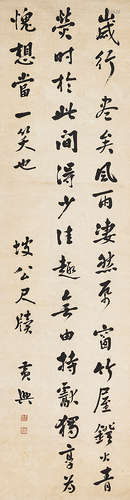 歲行盡矣風雨淒然紙窗竹屋鐙火青
熒时於此間得少佳趣無由持獻獨享为
愧想當一笑也
坡公尺牘 黃興